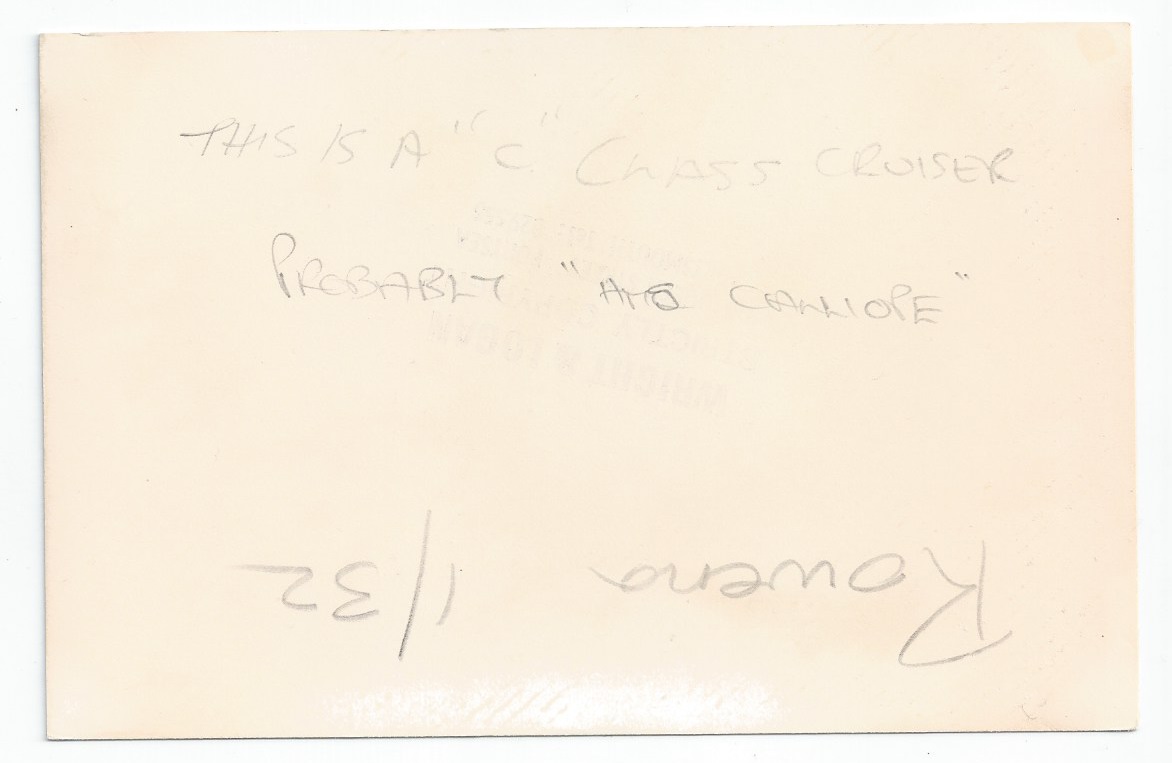 THIS IS A "C" CLASS CRUISER
PROBABLY "HMS CALLIOPE"
Rowena 1/32